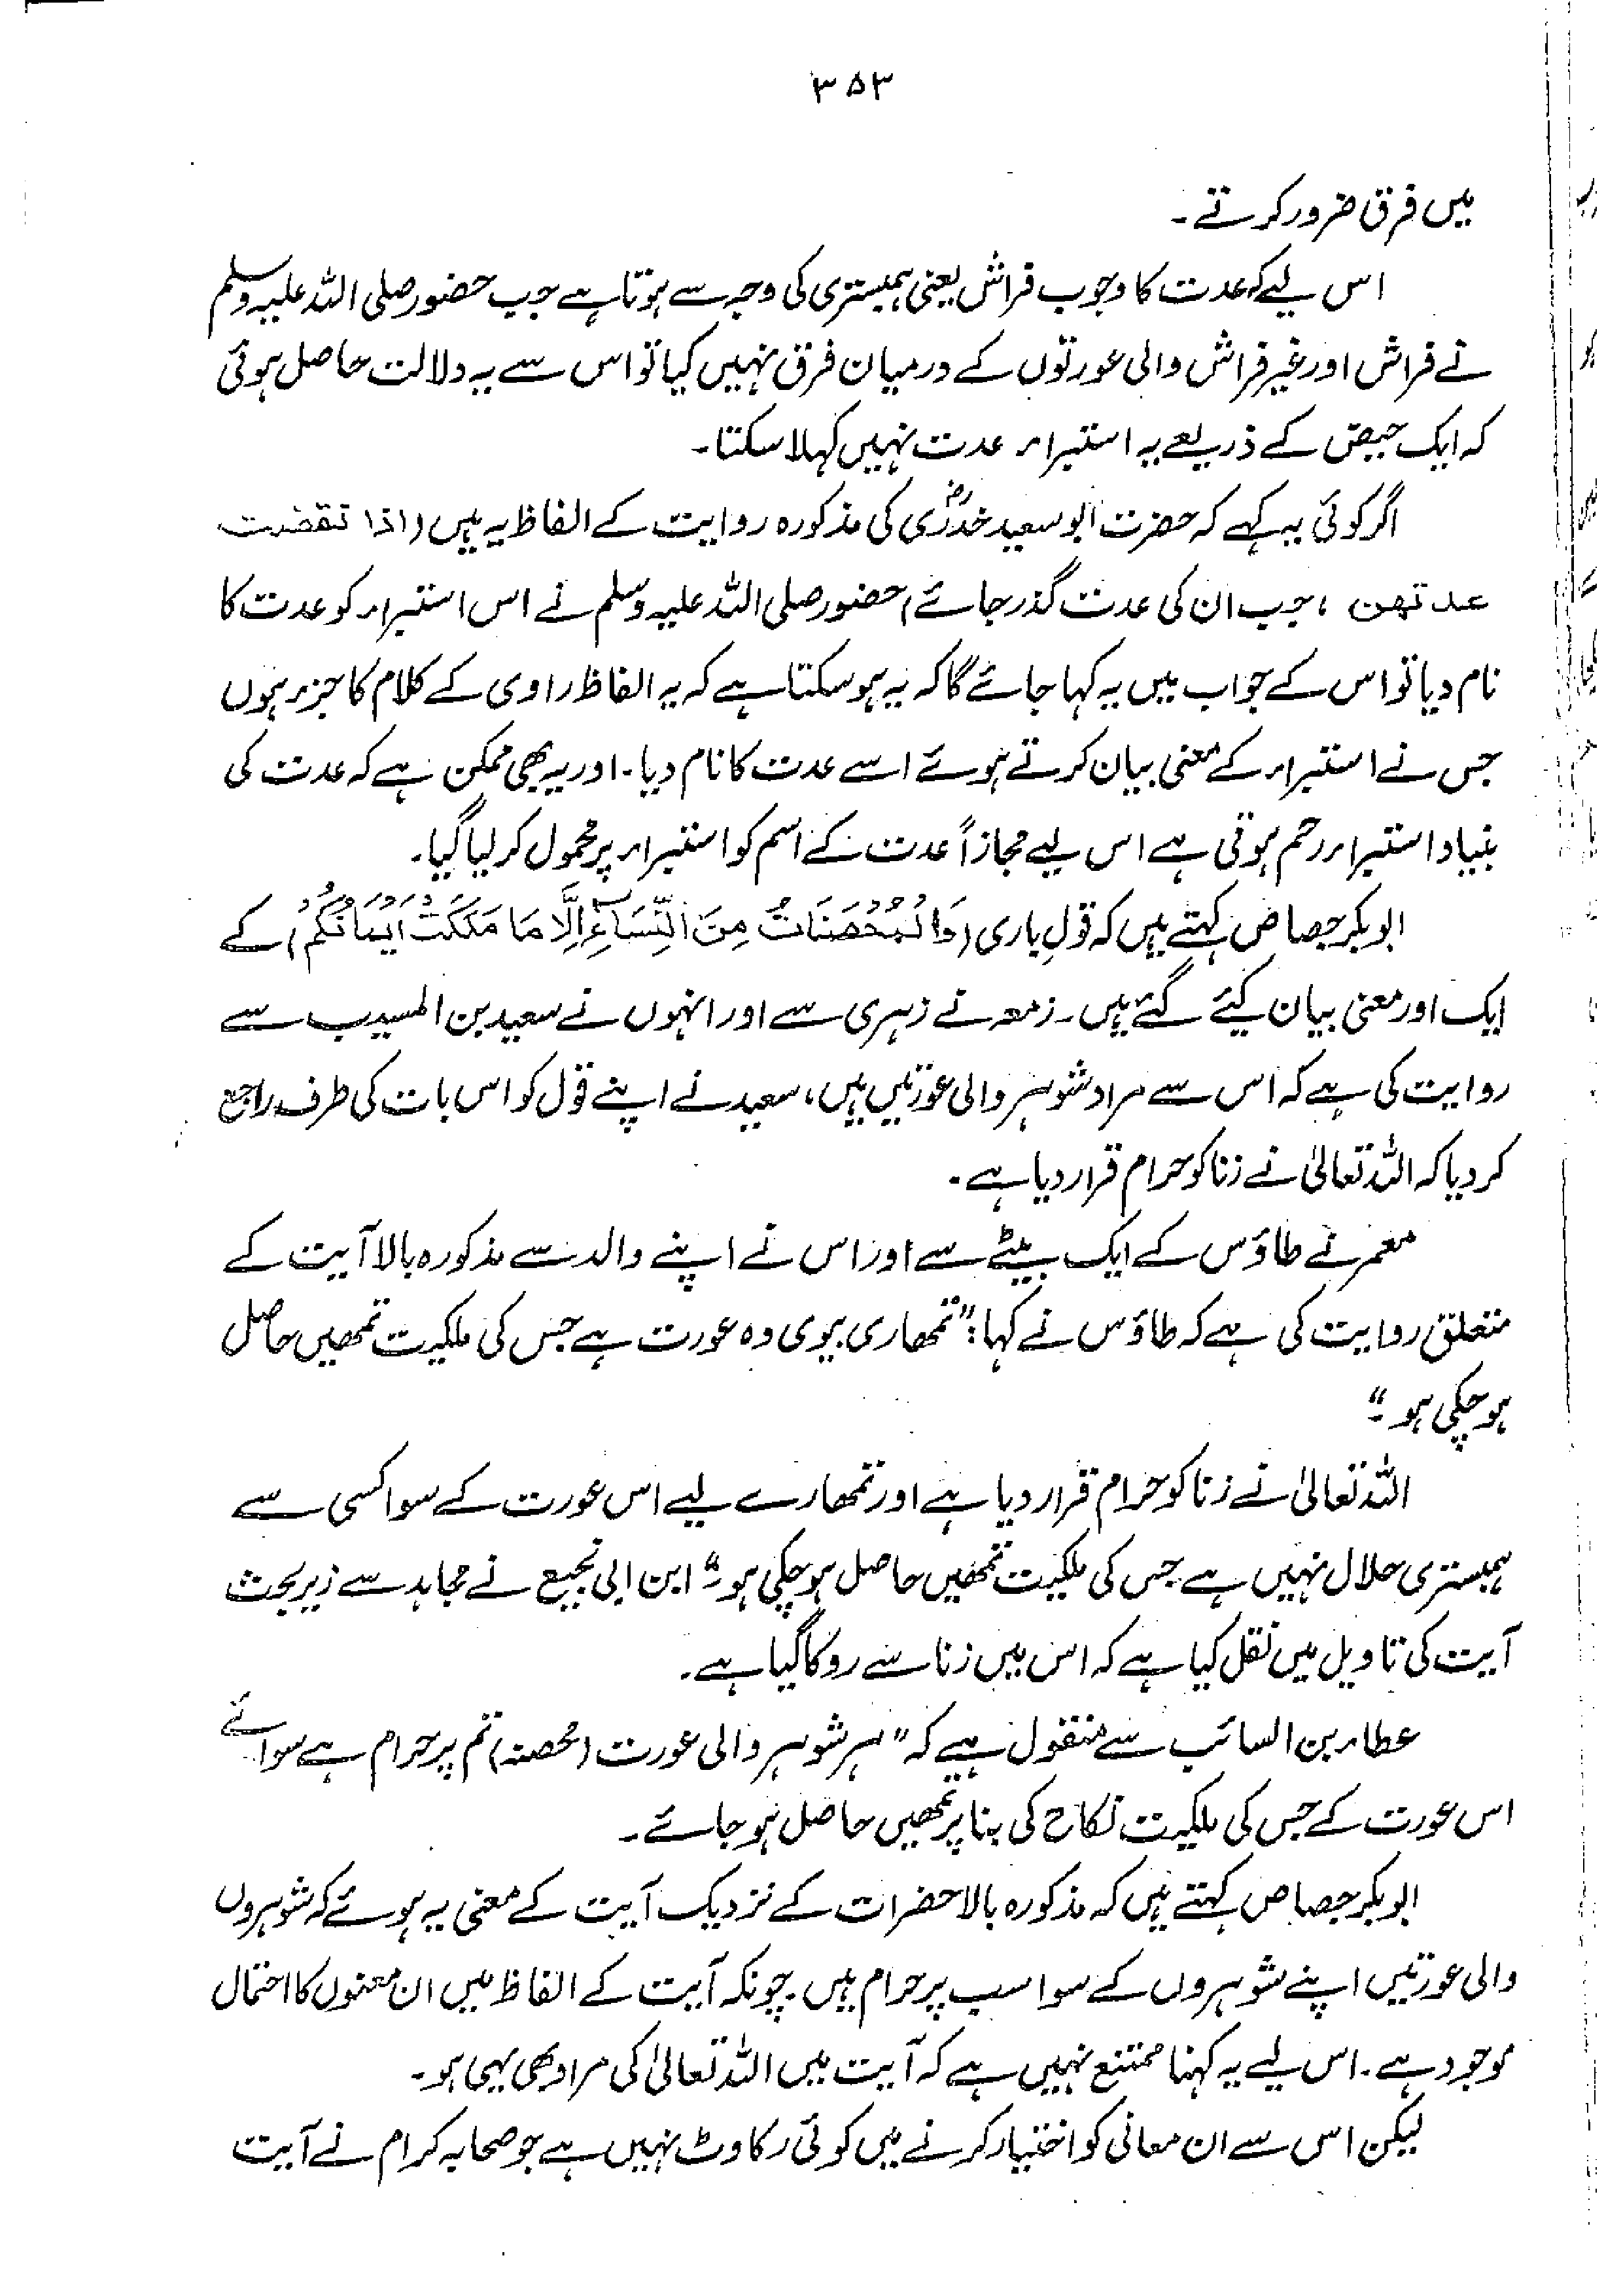 ۳۵۳
میں فرق ضرور کرتے۔
اس لیے کہ عدت کا وجوب فراش یعنی ہمبستری کی وجہ سے ہوتا ہے جب حضور صلی اللہ علیہ وسلم
نے فراش اور غیر فراش والی عورتوں کے درمیان فرق نہیں کیا تو اس سے یہ دلالت حاصل ہوئی
کہ ایک حیض کے ذریعے یہ استبراء عدت نہیں کہلا سکتا۔
اگر کوئی یہ کہے کہ حضرت ابوسعید خدریؓ کی مذکورہ روایت کے الفاظ یہ ہیں (اذا نقضت
عدتھن ، جب ان کی عدت گذر جائے) حضور صلی اللہ علیہ وسلم نے اس استبراء کو عدت کا
نام دیا تو اس کے جواب میں یہ کہا جائے گا کہ یہ ہو سکتا ہے کہ یہ الفاظ راوی کے کلام کا جزء ہوں
جس نے استبراء کے معنی بیان کرتے ہوئے اسے عدت کا نام دیا۔ اور یہ بھی ممکن ہے کہ عدت کی
بنیاد استبراء رحم ہوتی ہے اس لیے مجازاً عدت کے اسم کو استبراء پر محمول کر لیا گیا۔
ابوبکر جصاص کہتے ہیں کہ قولِ باری (وَالْمُحْصَنَاتُ مِنَ النِّسَآءِ اِلَّا مَا مَلَكَتْ اَيْمَانُكُمْ) کے
ایک اور معنی بیان کیئے گئے ہیں۔ زمعہ نے زہری سے اور انہوں نے سعید بن المسیب سے
روایت کی ہے کہ اس سے مراد شوہر والی عورتیں ہیں، سعید نے اپنے قول کو اس بات کی طرف راجع
کر دیا کہ اللہ تعالیٰ نے زنا کو حرام قرار دیا ہے۔
معمر نے طاؤس کے ایک بیٹے سے اور اس نے اپنے والد سے مذکورہ بالا آیت کے
متعلق روایت کی ہے کہ طاؤس نے کہا: "تمھاری بیوی وہ عورت ہے جس کی ملکیت تمھیں حاصل
ہو چکی ہو۔"
اللہ تعالیٰ نے زنا کو حرام قرار دیا ہے اور تمھارے لیے اس عورت کے سوا کسی سے
ہمبستری حلال نہیں ہے جس کی ملکیت تمھیں حاصل ہو چکی ہو۔" ابن ابی نجیع نے مجاہد سے زیر بحث
آیت کی تاویل میں نقل کیا ہے کہ اس میں زنا سے روکا گیا ہے۔
عطاء بن السائب سے منقول ہے کہ "ہر شوہر والی عورت (محصنہ) تم پر حرام ہے سوائے
اس عورت کے جس کی ملکیت نکاح کی بنا پر تمھیں حاصل ہو جائے۔
ابوبکر جصاص کہتے ہیں کہ مذکورہ بالا حضرات کے نزدیک آیت کے معنی یہ ہوئے کہ شوہروں
والی عورتیں اپنے شوہروں کے سوا سب پر حرام ہیں۔ چونکہ آیت کے الفاظ میں ان معنوں کا احتمال
موجود ہے۔ اس لیے یہ کہنا ممتنع نہیں ہے کہ آیت میں اللہ تعالیٰ کی مراد بھی یہی ہو۔
لیکن اس سے ان معانی کو اختیار کرنے میں کوئی رکاوٹ نہیں ہے جو صحابہ کرام نے آیت